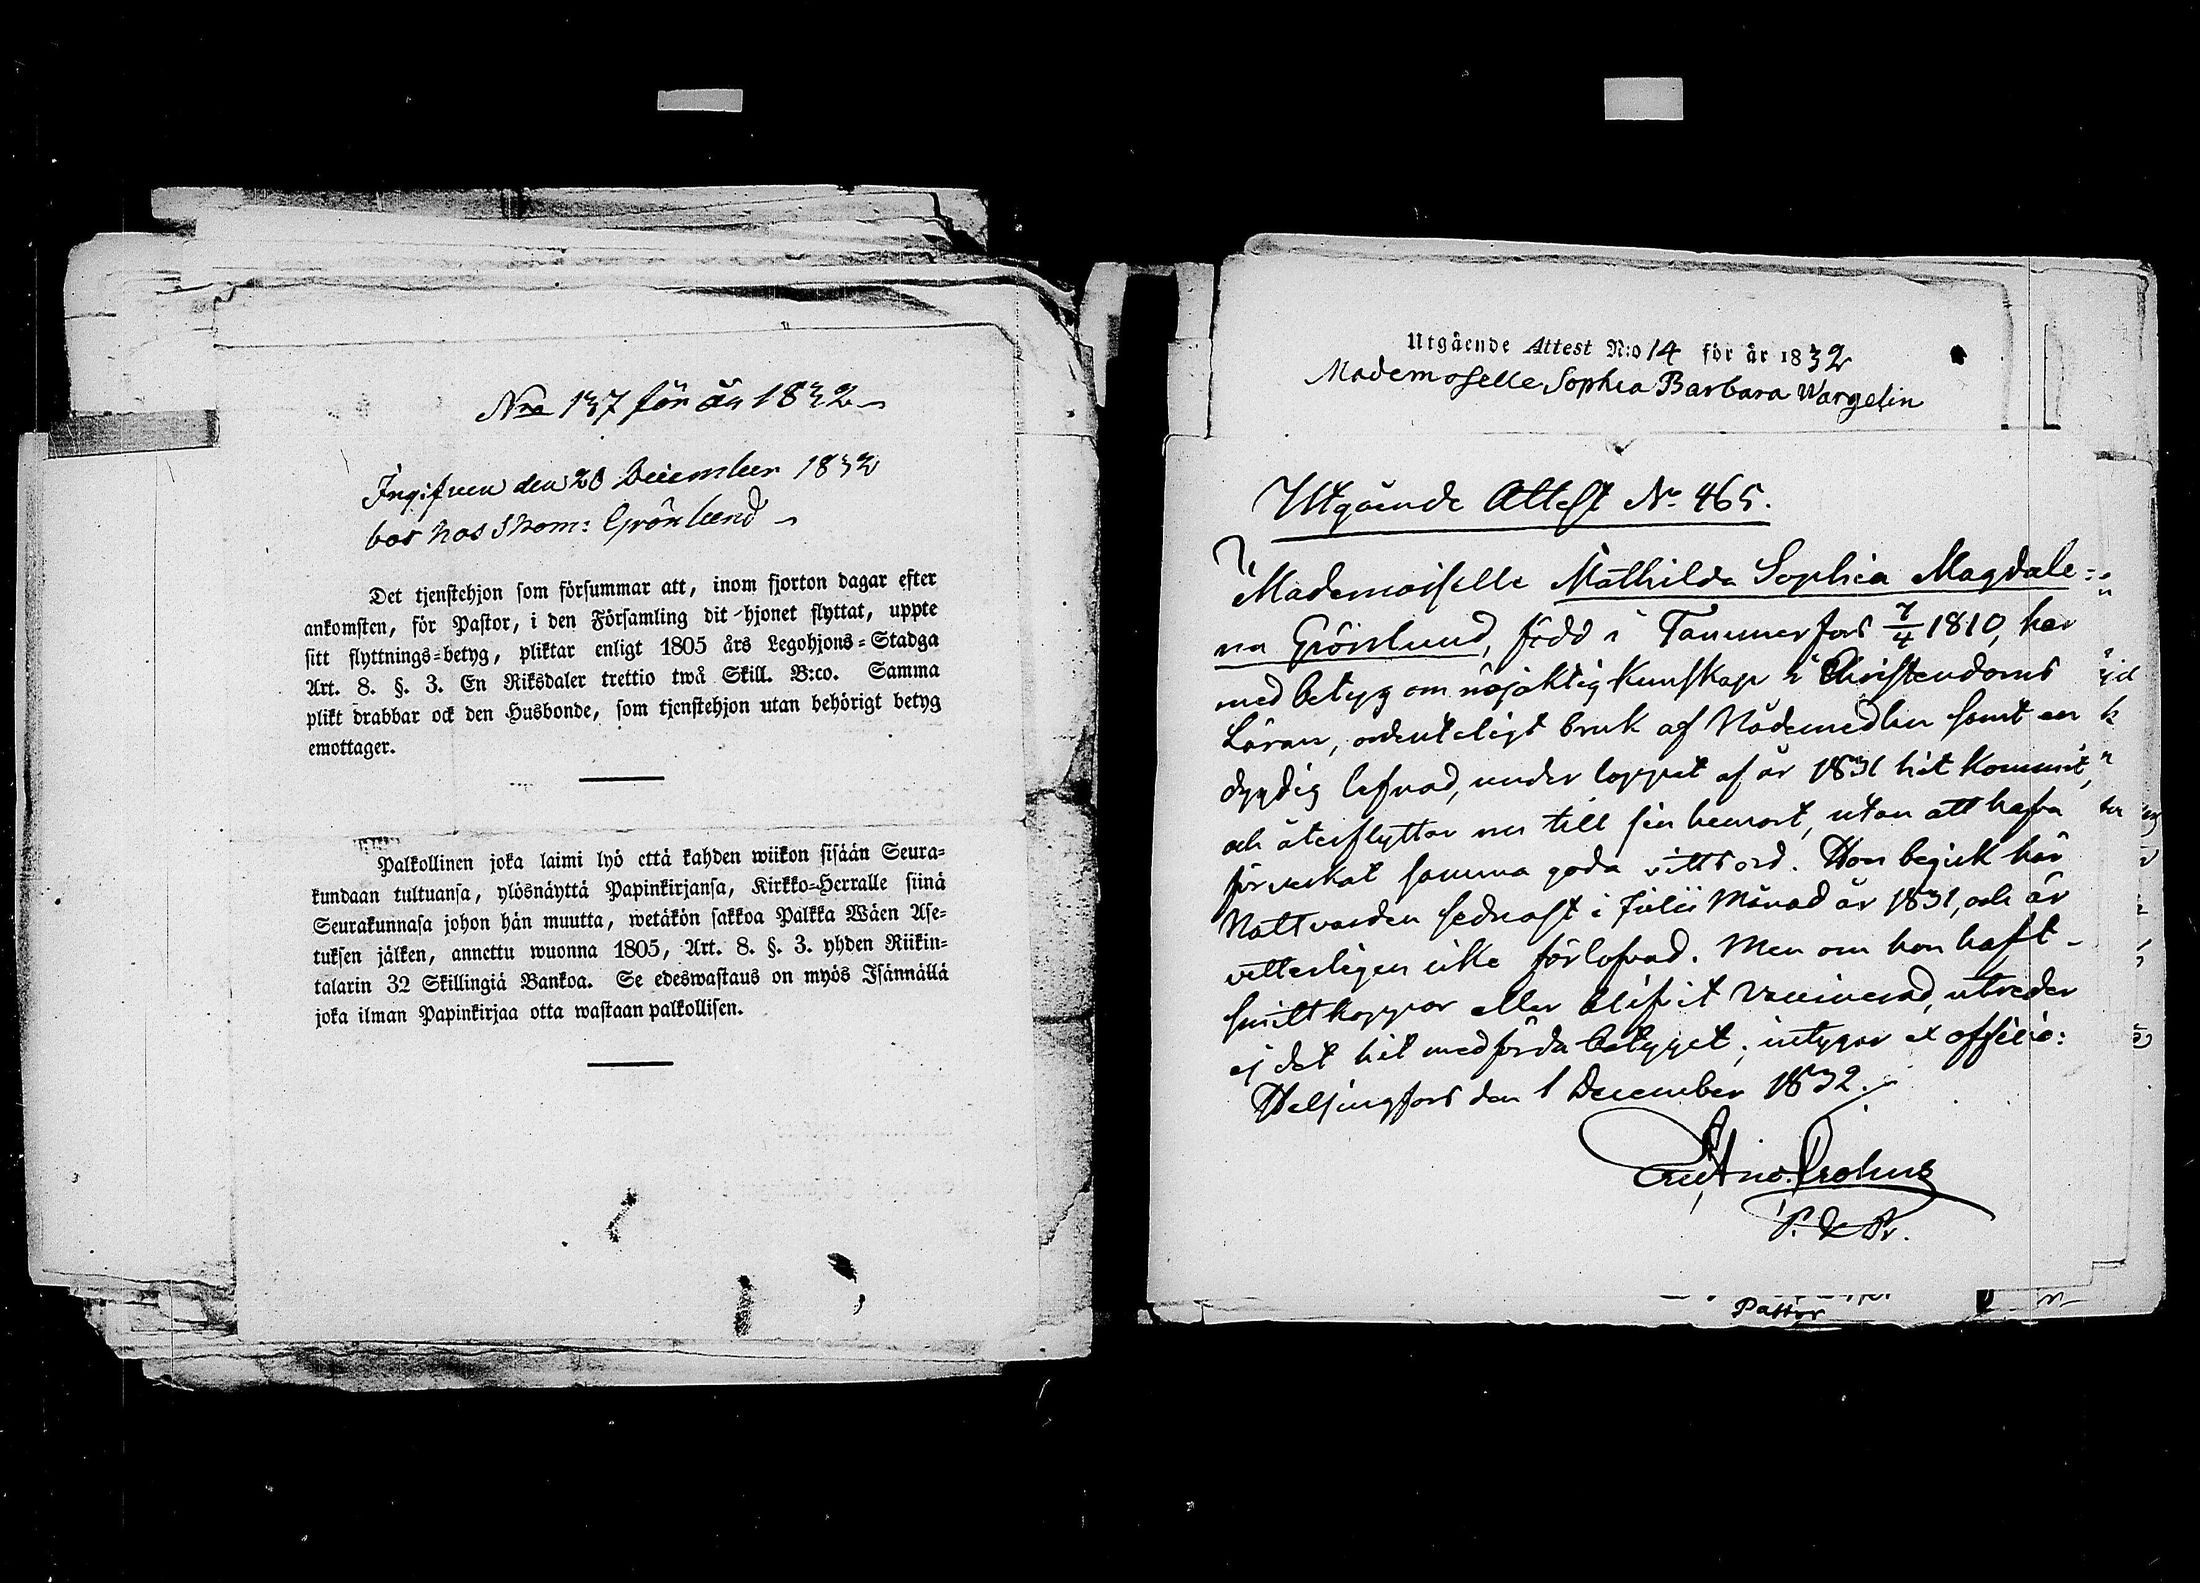 Nro 137 för år 1832
Ingifven den 20 December 1832
bor hos Skom: Grönlund
Det tjenstehjon som försummar att, inom fjorton dagar efter
ankomsten, för Pastor, i den Församling dit hjonet flyttat, uppte
sitt flyttnings-betyg, pliktar enligt 1805 års Legohjons-Stadga
Art. 8. §. 3. En Riksdaler trettio twå Skill. B:co. Samma
plikt drabbar ock den Husbonde, som tjenstehjon utan behörigt betyg
emottager.
Palkollinen joka laimi lyö että kahden wiikon sisään Seura-
kundaan tultuansa, ylösnäyttä Papinkirjansa, Kirkko-Herralle siinä
Seurakunnasa johon hän muutta, wetäkön sakkoa Palkka Wäen Ase-
tuksen jälken, annettu wuonna 1805, Art. 8. §. 3. yhden Riikin-
talarin 32 Skillingiä Bankoa. Se edeswastaus on myös Isännällä
joka ilman Papinkirjaa otta wastaan palkollisen.
Utgående Attest N:o 14 för år 1832
Mademoselle Sophia Barbara Wargelin
Utgående Attest No 465.
Mademoiselle Mathilda Sophia Magdale=
na Grönlund, född i Tammerfors 7/4 1810, har
med betyg om nöjaktig kunskap i Christendoms
Läran, ordenteligt bruk af Nådemedlen samt en
dygdig lefnad, under loppet af år 1831 hit kommit,
och återflyttar nu till sin hemort, utan att hafva
förverkat samma goda vittsord. Hon begick här
Nattvarden sednast i Julii Månad år 1831, och är
vetterligen icke förlofvad. Men om hon haft
smittkoppor eller blifvit Vaccinerad, utreder
ej det hit medförda betyget; intygar ex officio:
Helsingfors den 1 December 1832.
Crohns
Pastor